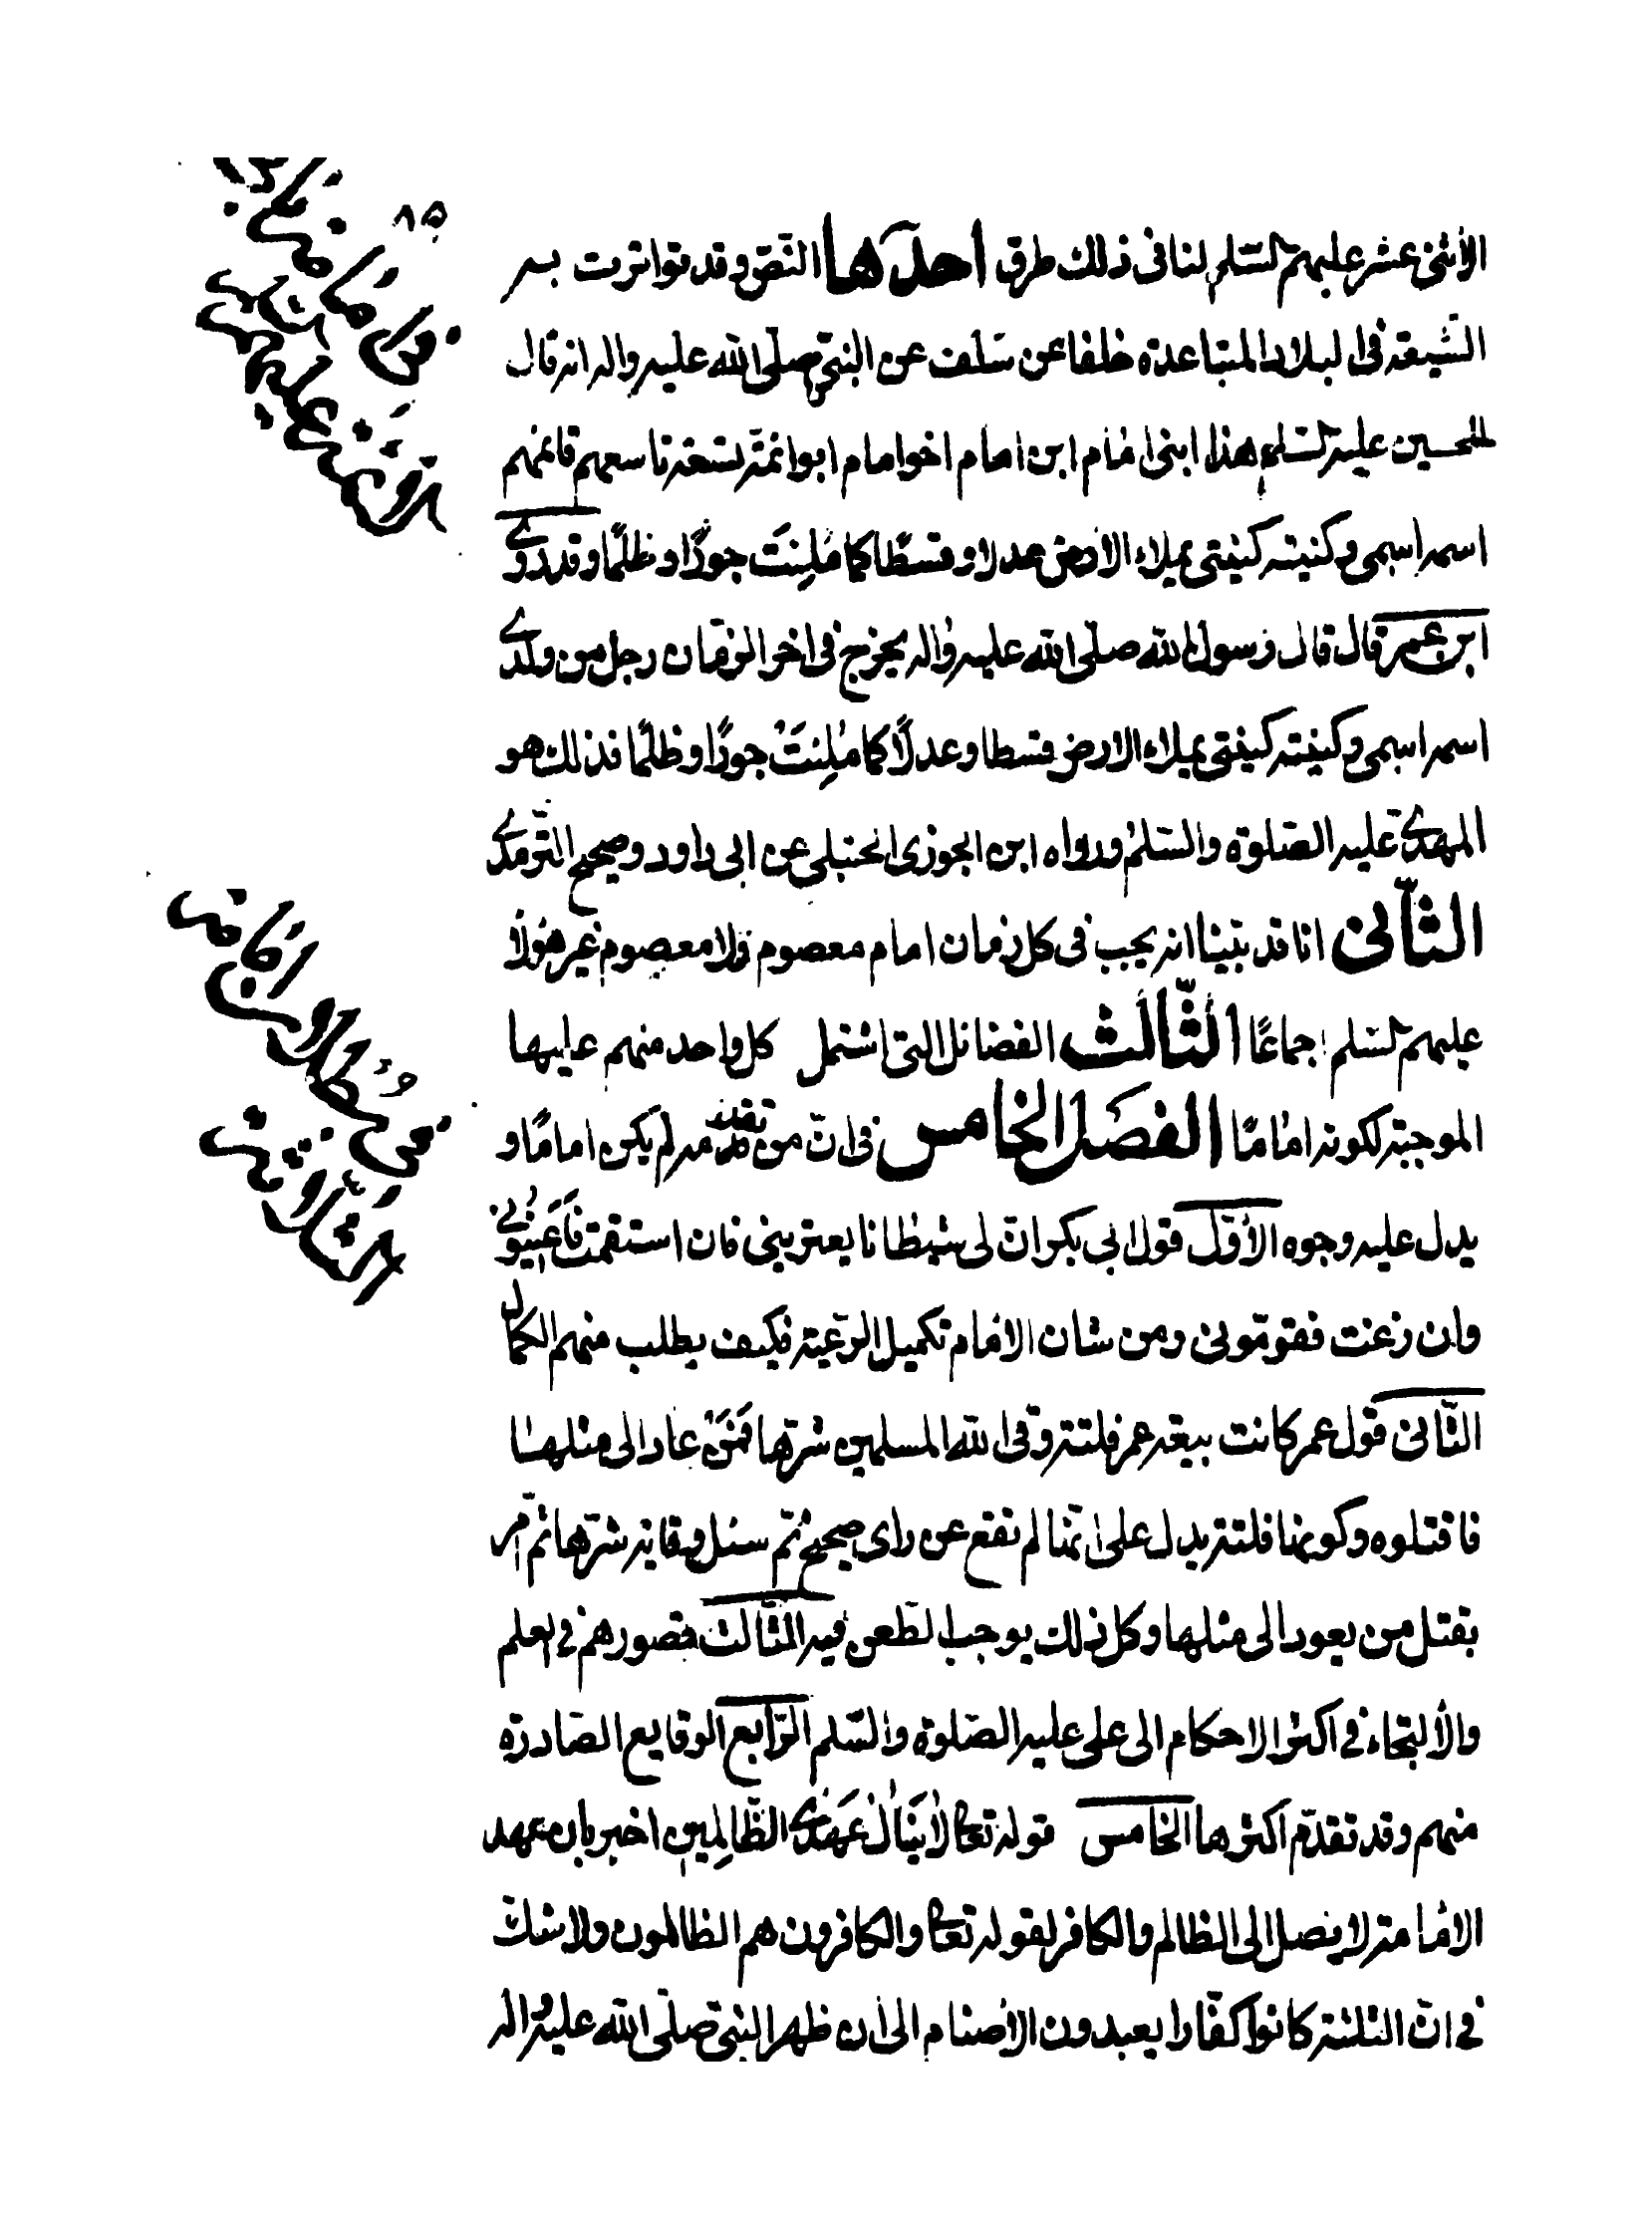 ٨٥
الأثنى عشر عليهم السّلم لنا فى ذلك طرق احدها النّصّ و قد تواترت به
الشّيعة فى البلاد المتباعدة خلفا عن سَلف عن النبىّ صلّى الله عليه واله انه قال
للحسين عليه السّلم هذا ابنى امام ابن امام اخو امام ابو ائمّة تسعة تاسعهم قائمهم
اسمه اسمى و كنيته كنيتى يملاء الأرض عدلا و قسطًا كما مُلِئَت جورًا و ظلمًا و قد روى
ابن عمر قال قال رسول الله صلّى الله عليه واله يخرج فى اخر الزمان رجل من ولدى
اسمه اسمى و كنيته كنيتى يملاء الارض قسطا وعدلًا كما مُلِئَت جورًا و ظلمًا فذلك هو
المهدى عليه الصّلوة والسّلم و رواه ابن الجوزى الحنبلى عن ابى داود و صحيح التّرمذى
الثّانى انا قد بيّنا انه يجب فى كل زمان امام معصوم ولا معصوم غير هؤلاء
عليهم السّلم اجماعًا الثّالث الفضائل التى اشتمل كل واحد منهم عليها
الموجبة لكونه امامًا الفصل الخامس فى انّ من تقدّمه لم يكن امامًا و
يدل عليه وجوه الأوّل قول ابى بكر انّ لى شيطانا يعترينى فان استقمت فَاَعينونى
وان زغت فقوّمونى ومن شان الامام تكميل الرّعية فكيف يطلب منهم الكمال
الثّانى قول عمر كانت بيعة عمر فلتة وقى الله المسلمين شرّها فَمَن عاد الى مثلها
فاقتلوه و كونها فلتة يدل على انّها لم تقع عن راى صحيح ثمّ سئل وقاية شرّها ثم امر
بقتل من يعود الى مثلها و كل ذلك يوجب الطّعن فيه الثّالث قصورهم فى العلم
والألتجاء فى اكثر الاحكام الى على عليه الصّلوة والسّلم الرّابع الوقايع الصّادرة
منهم وقد تقدّم اكثرها الخامس قوله تعالى لا يَنَالُ عَهْدِى الظّالِمين اخبر بان عهد
الامامة لا يصل الى الظالم و الكافر لقوله تعالى والكافرون هم الظالمون ولا شك
فى انّ الثلثة كانوا كفّارا يعبدون الأصنام الى ان ظهر النبىّ صلّى الله عليه واله